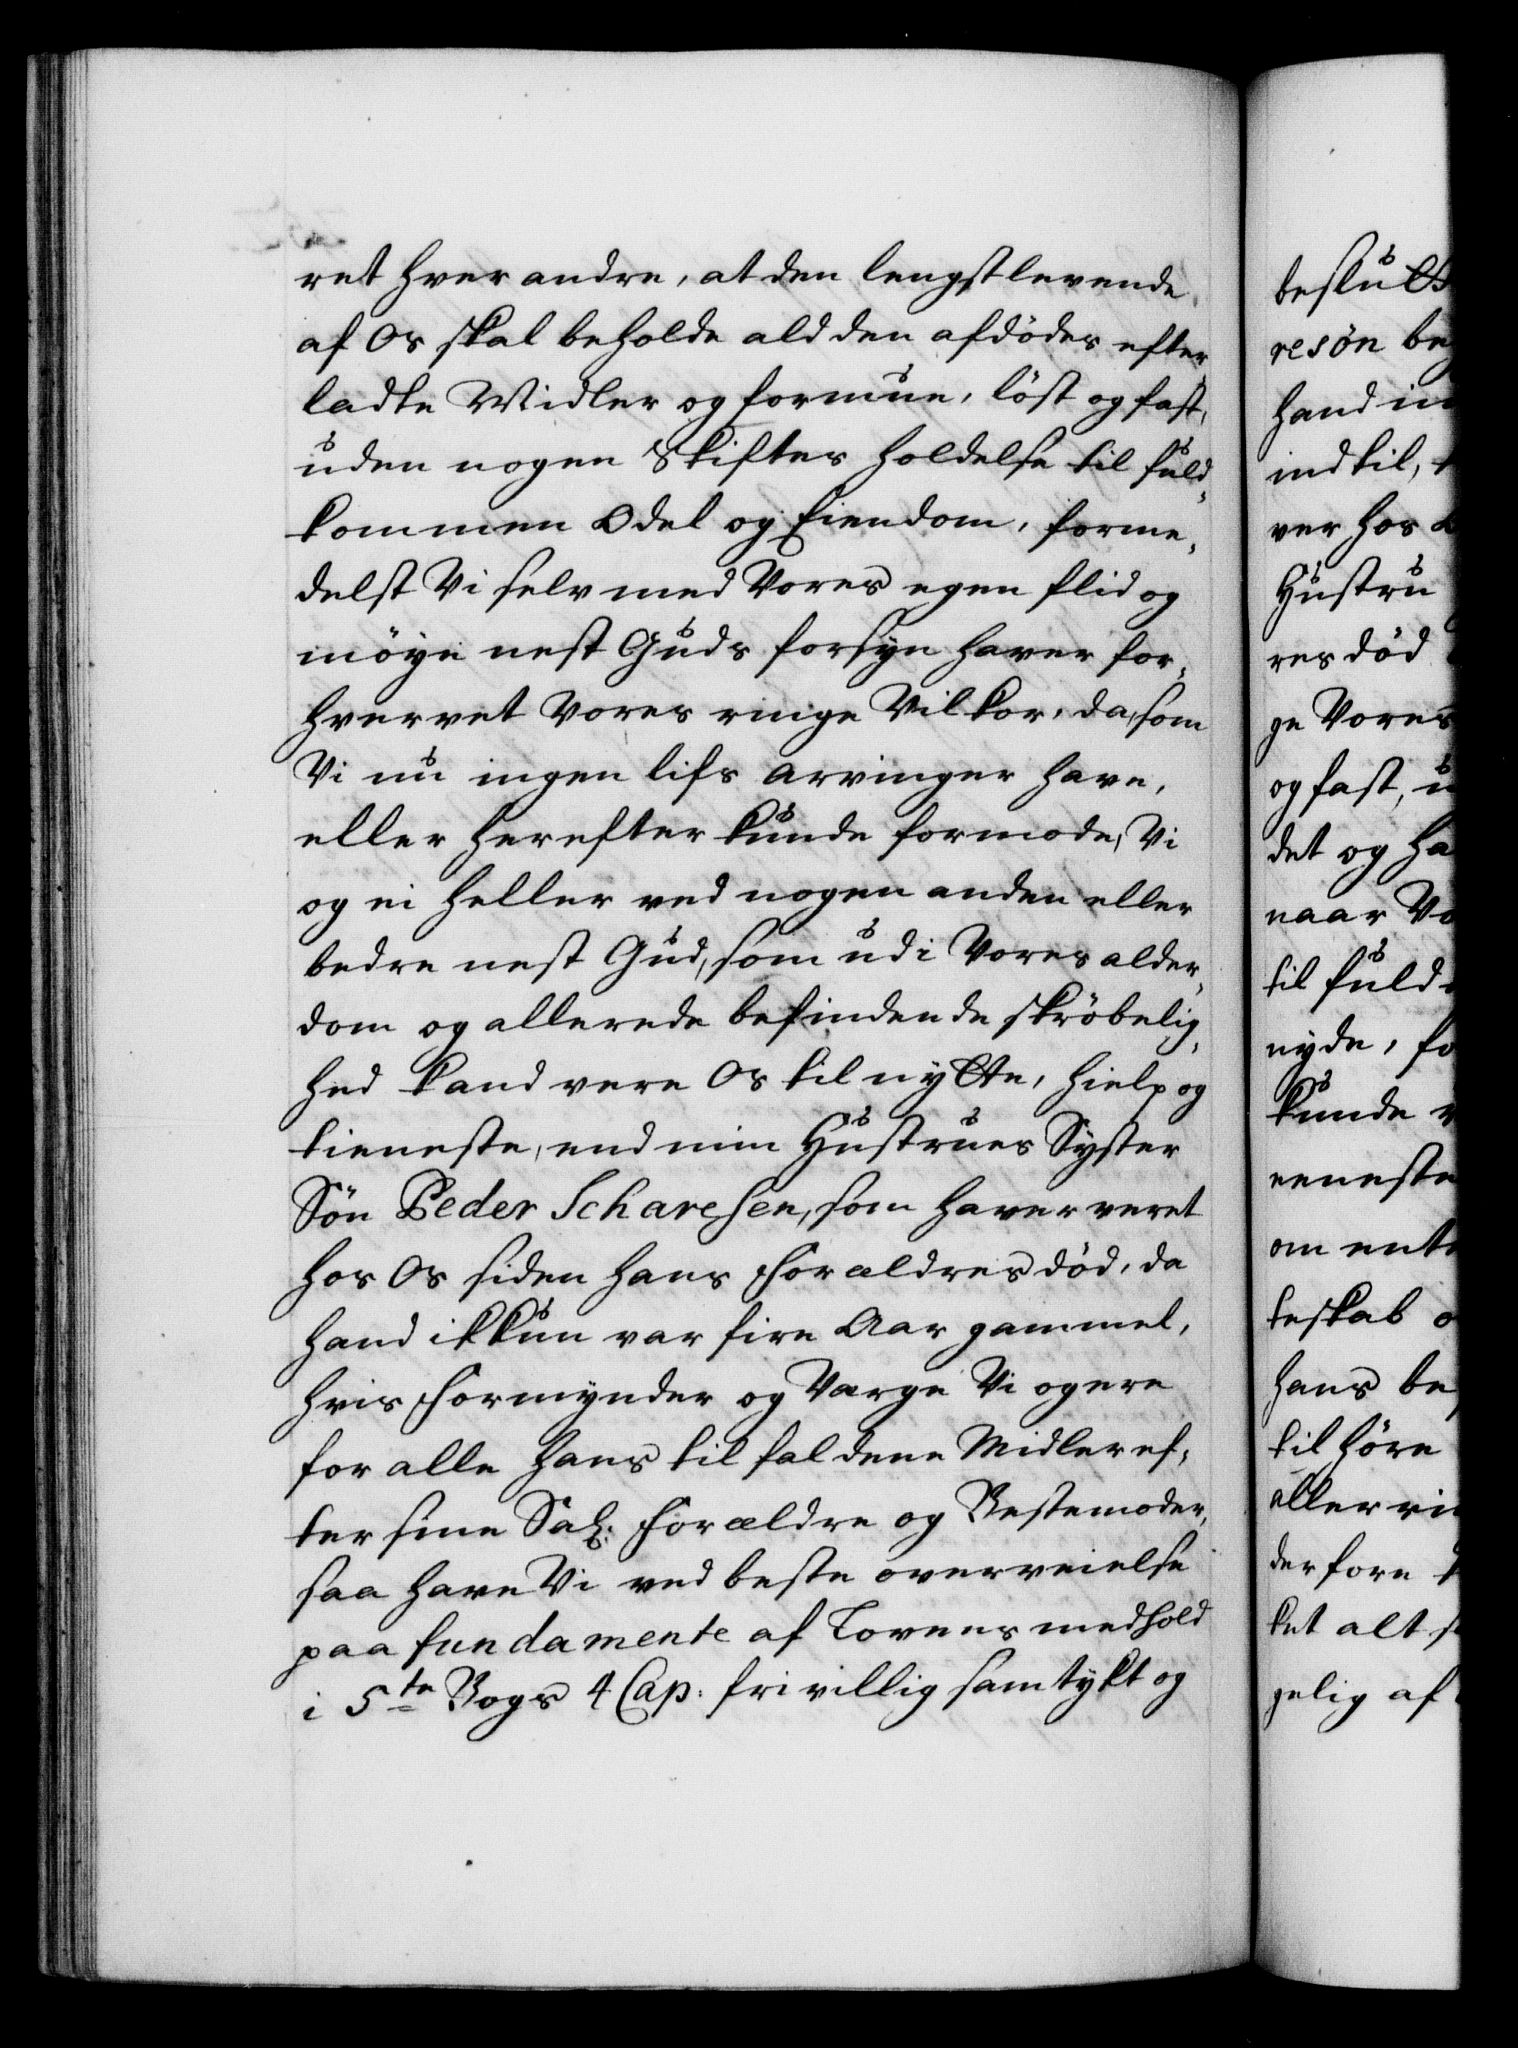 ret hver andre, at den lengstlevende
af Os skal beholde ald den afdødes efter,
ladte Midler og formue, løst og fast,
uden nogen Skiftes holdelse til fuld,
kommen Odel og Eiendom, forme,
delst Vi selv med Vores egen flid og
møye nest Guds forsyn haver for,
hvervet vores ringe Vilkor, da, som
Vi nu ingen lifs arvinger have,
eller herefter kunde formode, Vi
og ei heller ved nogen anden eller
bedre nest Gud, som udi Vores alder,
dom og allerede befindende skrøbelig,
hed kand vere Os til nytte, hielp og
tieneste, end min Hustrues Syster
Søn Peder Scharesen, som haver veret
hos Os siden hans Forældres død, da
hand ikkun var fire Aar gammel,
hvis Formynder og Værge Vi og ere
for alle hans tilfaldene Midler ef,
ter sine Sal: Forældre og Bestemoder,
saa have Vi ved beste overveielse
paa fundamente af Lovens medhold
i 5te Bogs 4 Cap: frivillig samtykt og
beslutt
resøn be
hand in
ind til,
ver hos
Hustru
res død
ge Vores
og fast, u
det og ha
naar Vo
til fuld
nyde, fo
kunde
eeneste
om ent
teskab
hans be
til høre
eller vi
derfore
tet alt s
gelig af